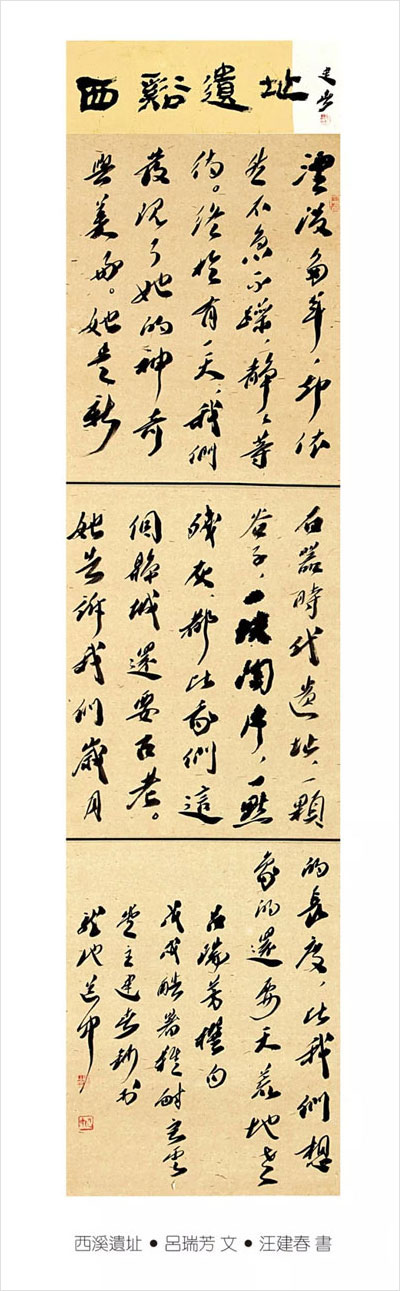 西谿遺址
建春
湮沒多年，却依
然不急不躁，靜々等
待。終於有一天，我們
發現了她的神奇
與美麗。她是新
石器時代遺址，一顆
谷子，一塊陶片，一點
殘灰，都比我們這
個縣城還要古老。
她告訴我們歲月
的長度，比我們想
象的還要天荒地老
呂瑞芳撰句
戊戌酷暑
堂主建春鈔書
西溪遺址 ● 呂瑞芳 文 ● 汪建春 書